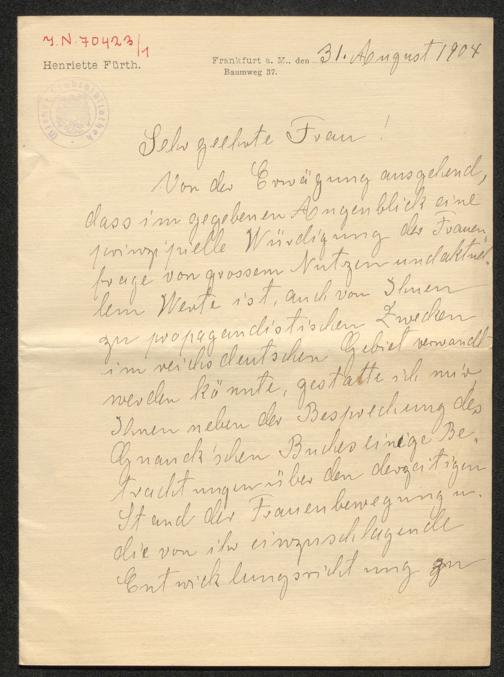 J.N. 70423/1
Henriette Fürth.
Frankfurt a. M., den 31. August 1904
Baumweg 37.
Sehr geehrte Frau!
Von der Erwägung ausgehend,
dass im gegebenen Augenblick eine
prinzipielle Würdigung der Frauen
frage von grossem Nutzen und aktuel
lem Werte ist, auch von Ihnen
zu propagandistischen Zwecken
im reichsdeutschen Gebiet verwandt
werden könnte, gestatte ich mir
Ihnen neben der Besprechung des
Gnauck'schen Buches einige Be-
trachtungen über den derzeitigen
Stand der Frauenbewegung u.
die von ihr einzuschlagende
Entwicklungsrichtung zu